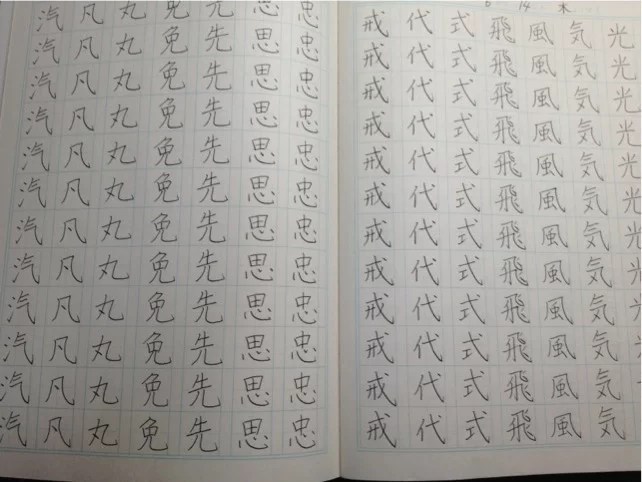 汽 凡 丸 免 先 思 忠
汽 凡 丸 免 先 思 忠
汽 凡 丸 免 先 思 忠
汽 凡 丸 免 先 思 忠
汽 凡 丸 免 先 思 忠
汽 凡 丸 免 先 思 忠
汽 凡 丸 免 先 思 忠
汽 凡 丸 免 先 思 忠
汽 凡 丸 免 先 思 忠
汽 凡 丸 免 先 思 忠
汽 凡 丸 免 先 思 忠
汽 凡 丸 免 先 思 忠
戒 代 式 飛 風 気 光
戒 代 式 飛 風 気 光
戒 代 式 飛 風 気 光
戒 代 式 飛 風 気 光
戒 代 式 飛 風 気 光
戒 代 式 飛 風 気 光
戒 代 式 飛 風 気 光
戒 代 式 飛 風 気 光
戒 代 式 飛 風 気
戒 代 式 飛 風 気
戒 代 式 飛 風 気
戒 代 式 飛 風 気